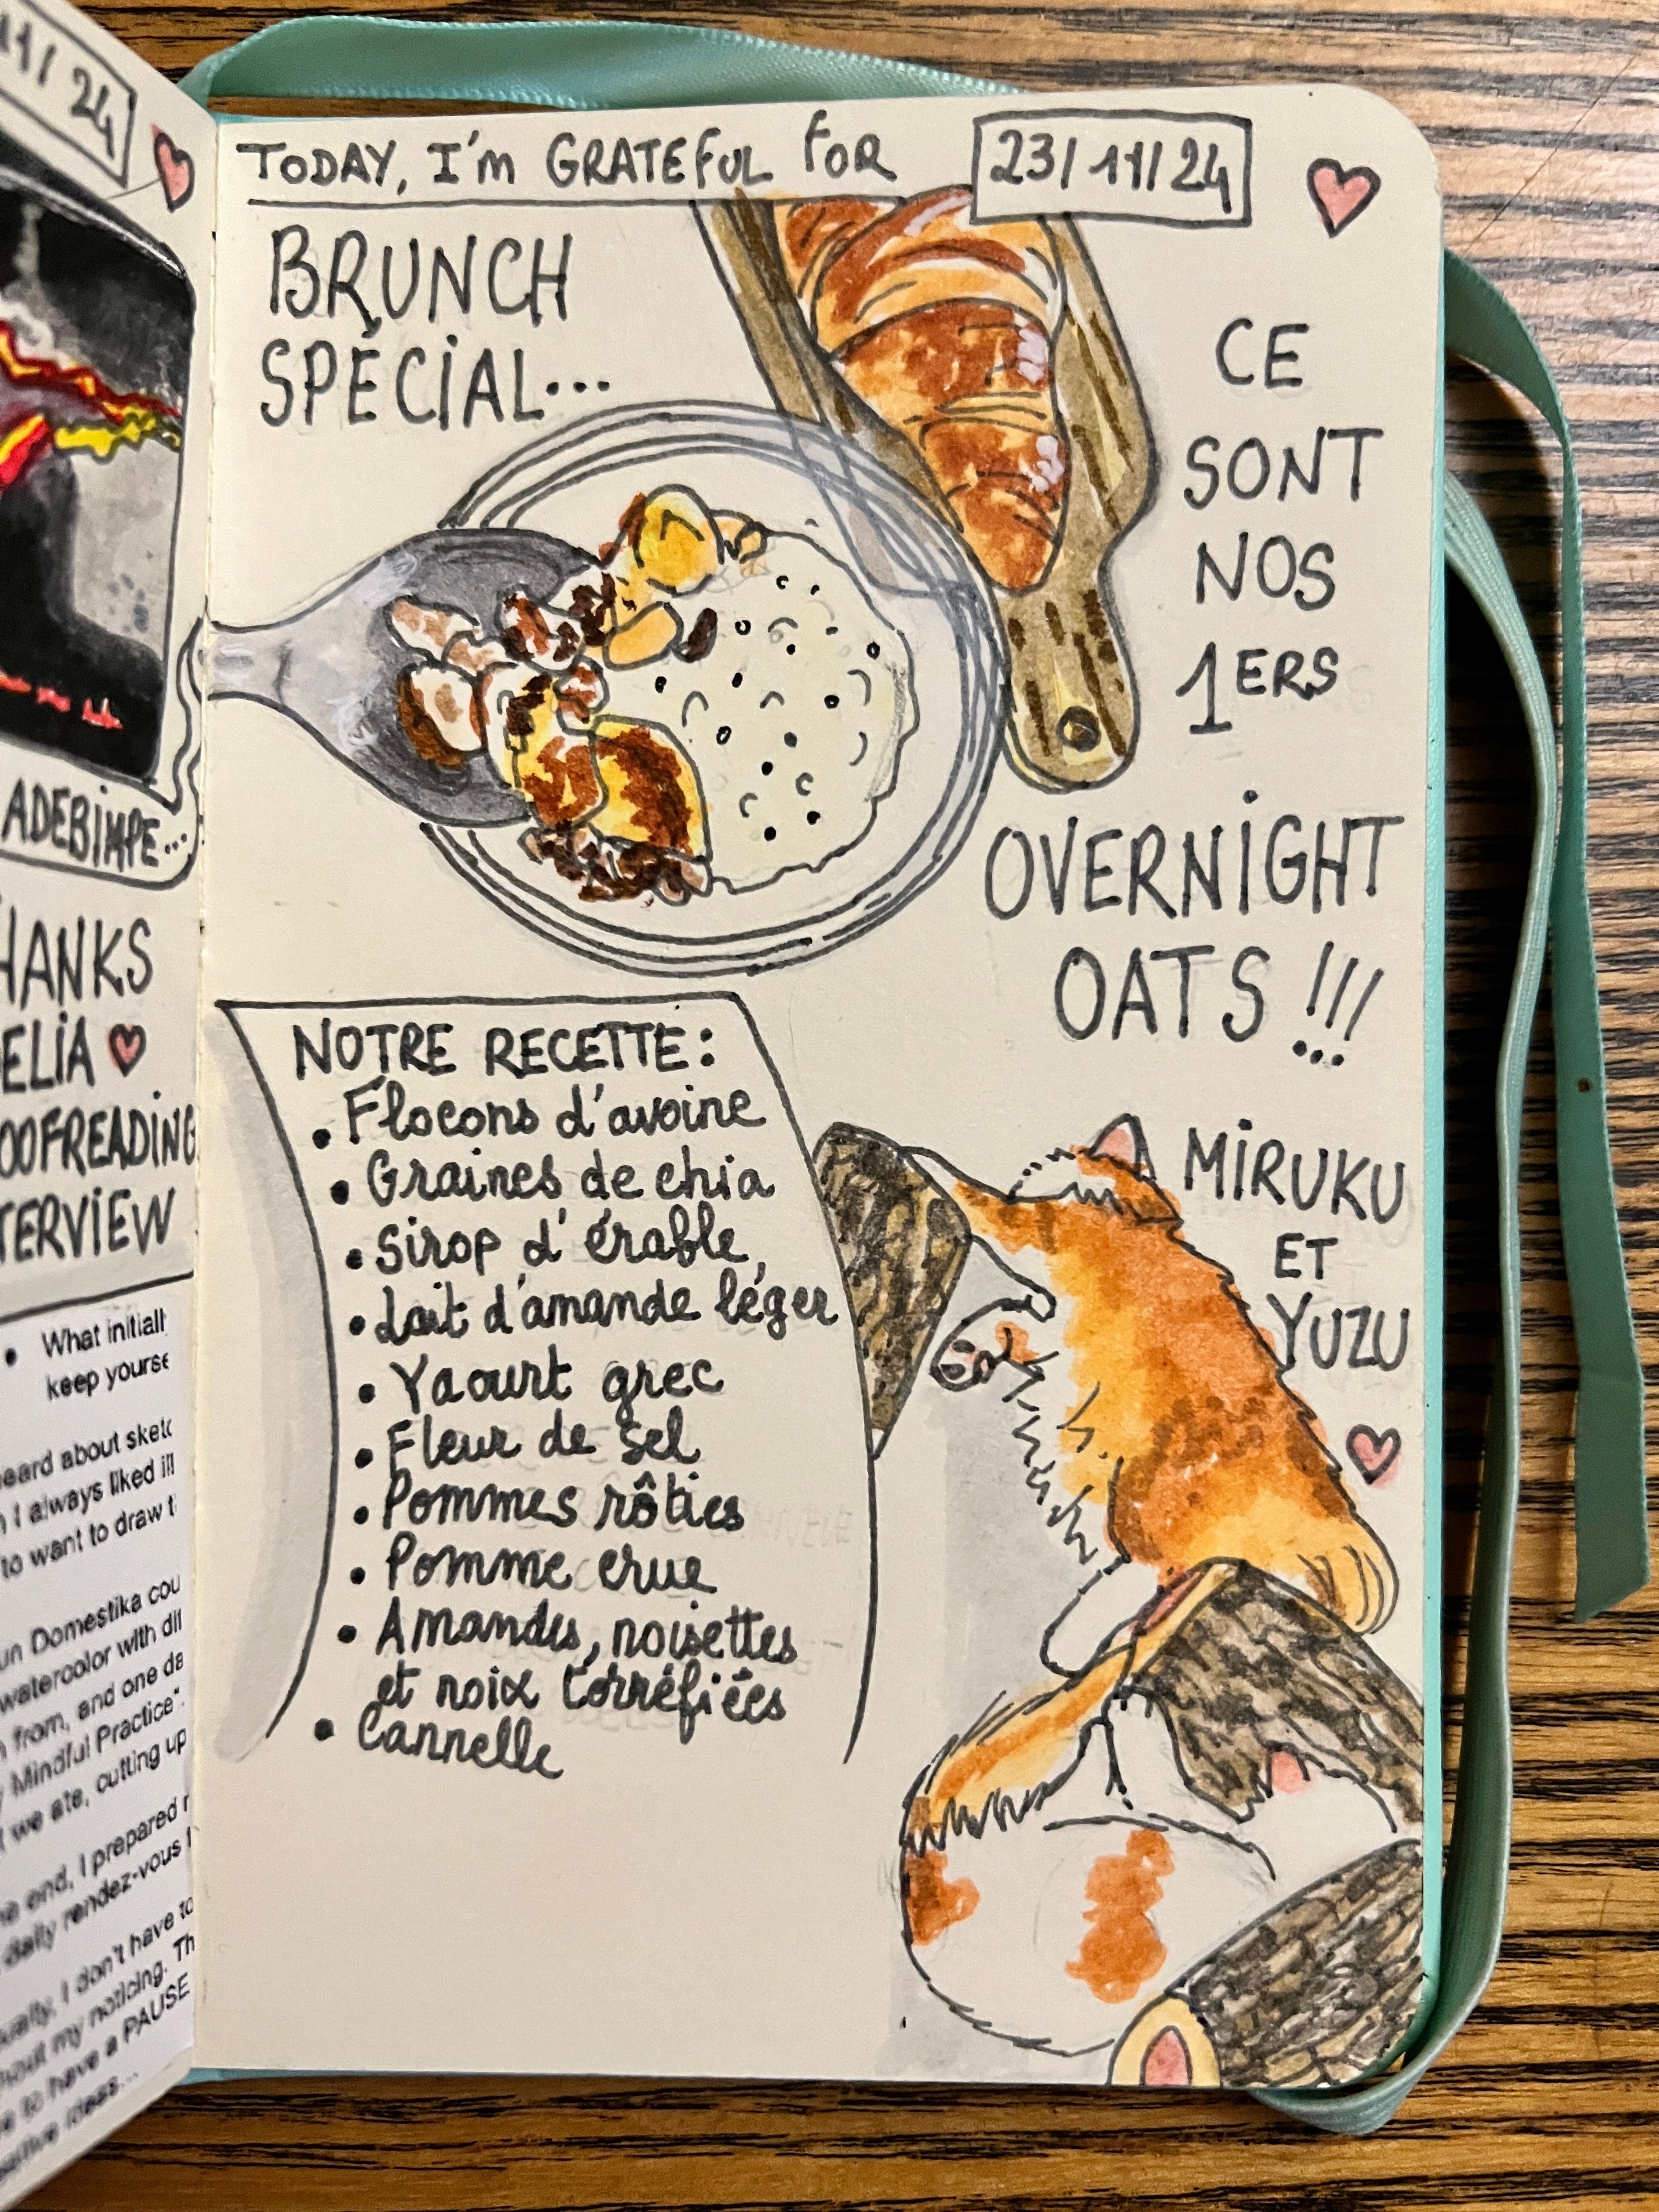 11/24
ADEBIMPE...
What initiall
keep yourse
heard about sketc
I always liked ill
to want to draw t
un Domestika cou
watercolor with dif
from, and one da
Mindful Practice".
we ate, cutting up
end, I prepared
daily rendez-vous
I don't have to
my noticing. Th
to have a PAUSE
ideas...
TODAY, I'M GRATEFUL FOR 23/11/24
BRUNCH
SPÉCIAL...
CE
SONT
NOS
1ERS
OVERNIGHT
OATS !!!
NOTRE RECETTE:
• Flocons d'avoine
• Graines de chia
• Sirop d'érable
• Lait d'amande léger
• Yaourt grec
• Fleur de sel
• Pommes rôties
• Pomme crue
• Amandes, noisettes
et noix torréfiées
• Cannelle
MIRUKU
ET
YUZU